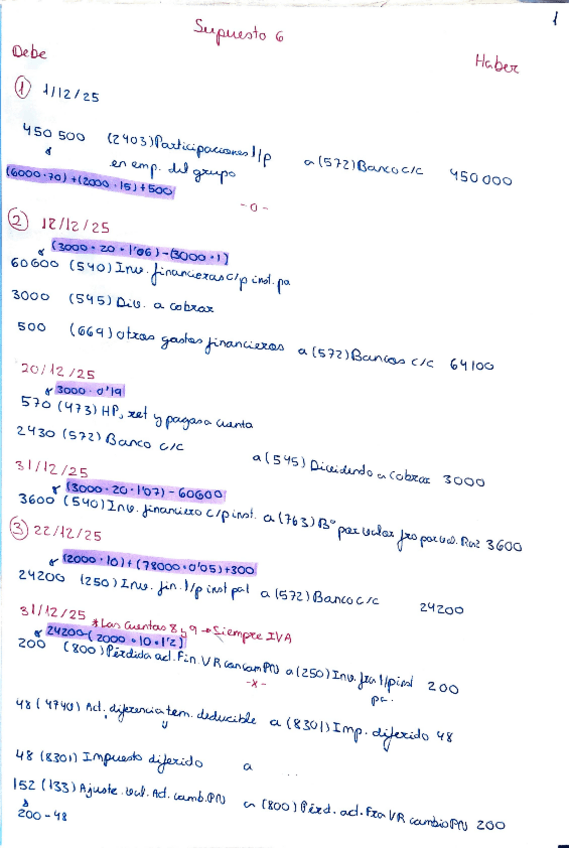 1
Supuesto 6
Debe
Haber
① 1/12/25
450 500 (2403) Participaciones l/p a (572) Banco c/c 450 000
en emp. del grupo
(6000·70)+(2000·15)+500
-o-
② 12/12/25
(3000·20·1'06)-(3000·1)
60600 (540) Inv. financieras c/p inst. pa
3000 (545) Div. a cobrar
500 (669) otros gastos financieros a (572) Bancos c/c 64100
20/12/25
3000·0'19
570 (473) HP, ret y pagos a cuenta
2430 (572) Banco c/c
a (545) Dividendo a cobrar 3000
31/12/25
(3000·20·1'07)-60600
3600 (540) Inv. financiero c/p inst. a (763) Bº por valor fro por val. Raz 3600
③ 22/12/25
(2000·10)+(78000·0'05)+300
24200 (250) Inv. fin. l/p inst pat a (572) Banco c/c 24200
31/12/25 *Las cuentas 8 y 9 → Siempre IVA
24200-(2000·10·1'2)
200 (800) Pérdida act. Fin. VR con cam PN a (250) Inv. fra l/p inst 200
pa.
-x-
48 (4740) Act. diferencia tem. deducible a (8301) Imp. diferido 48
48 (8301) Impuesto diferido a
152 (133) Ajuste. val. Ad. camb. PN a (800) Pérd. act. Fra VR cambio PN 200
200-48